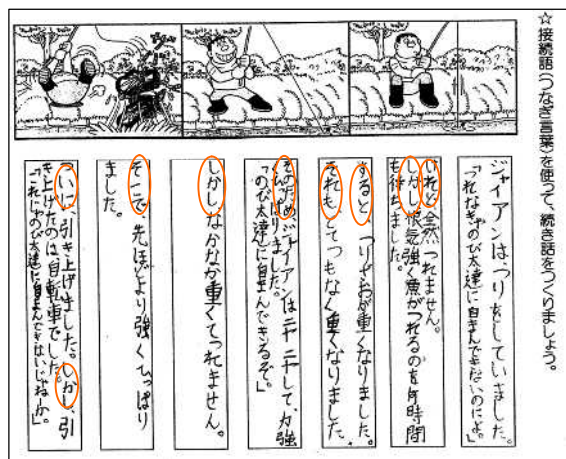 ☆接続語(つなぎ言葉)を使って、続き話をつくりましょう。
ジャイアンは、つりをしていました。
「つれなきゃのび太達に自まんできないのによ。」
けれど全然つれません。
しかし根気強く魚がつれるのを何時間
も待ちました。
すると、つりざおが重くなりました。
それも、とてつもなく重くなりました。
そのため、ジャイアンはニヤニヤして、力強
くひっぱりました。
「のび太達に自まんできるぞ。」
しかし、なかなか重くてつれません。
そこで、先ほどより強くひっぱり
ました。
ついに、引き上げました。しかし、引
き上げたのは自転車でした。
「これじゃのび太達に自まんできないじゃねーか。」